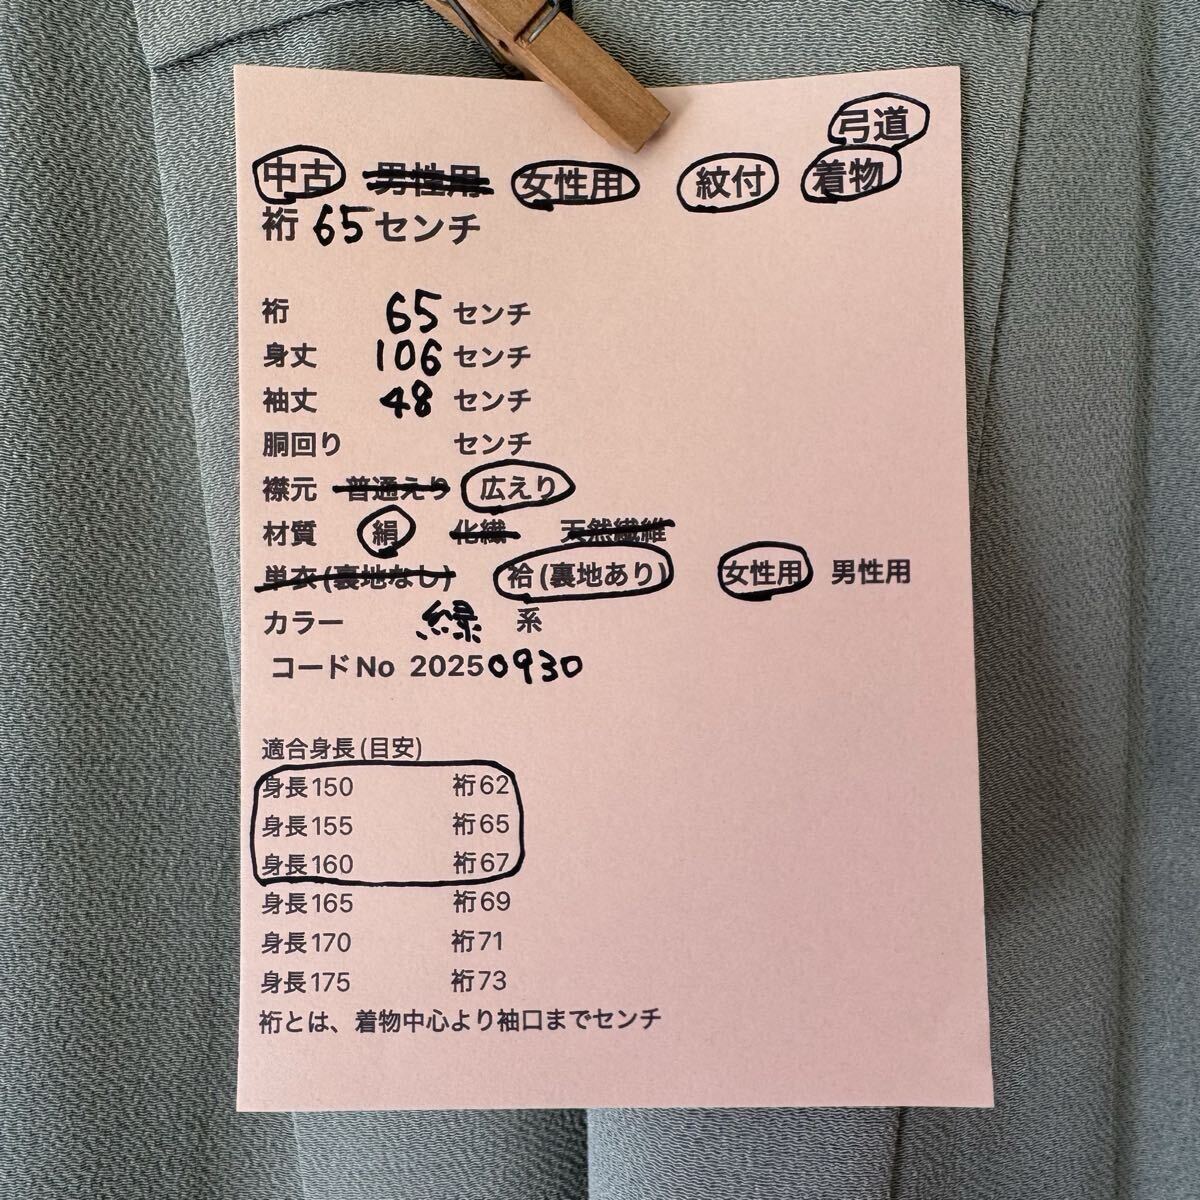 弓道
中古 男性用 女性用 紋付 着物
裄 65 センチ
裄 65 センチ
身丈 106 センチ
袖丈 48 センチ
胴回り センチ
襟元 普通えり 広えり
材質 絹 化繊 天然繊維
単衣(裏地なし) 袷(裏地あり) 女性用 男性用
カラー 緑 系
コードNo 20250930
適合身長(目安)
身長150 裄62
身長155 裄65
身長160 裄67
身長165 裄69
身長170 裄71
身長175 裄73
裄とは、着物中心より袖口までセンチ